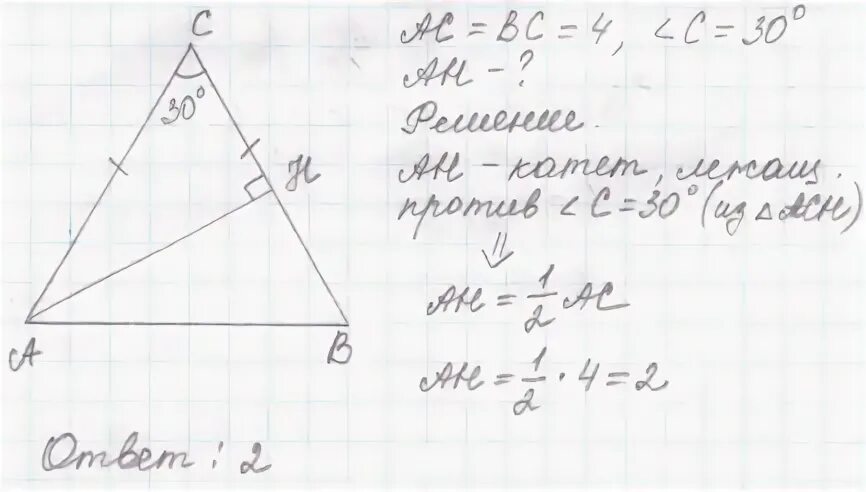 C
30°
H
A
B
AC = BC = 4, ∠C = 30°
AH - ?
Решение.
AH - катет, лежащ.
против ∠C = 30° (из △ACH)
⇓
AH = 1/2 AC
AH = 1/2 · 4 = 2
Ответ: 2